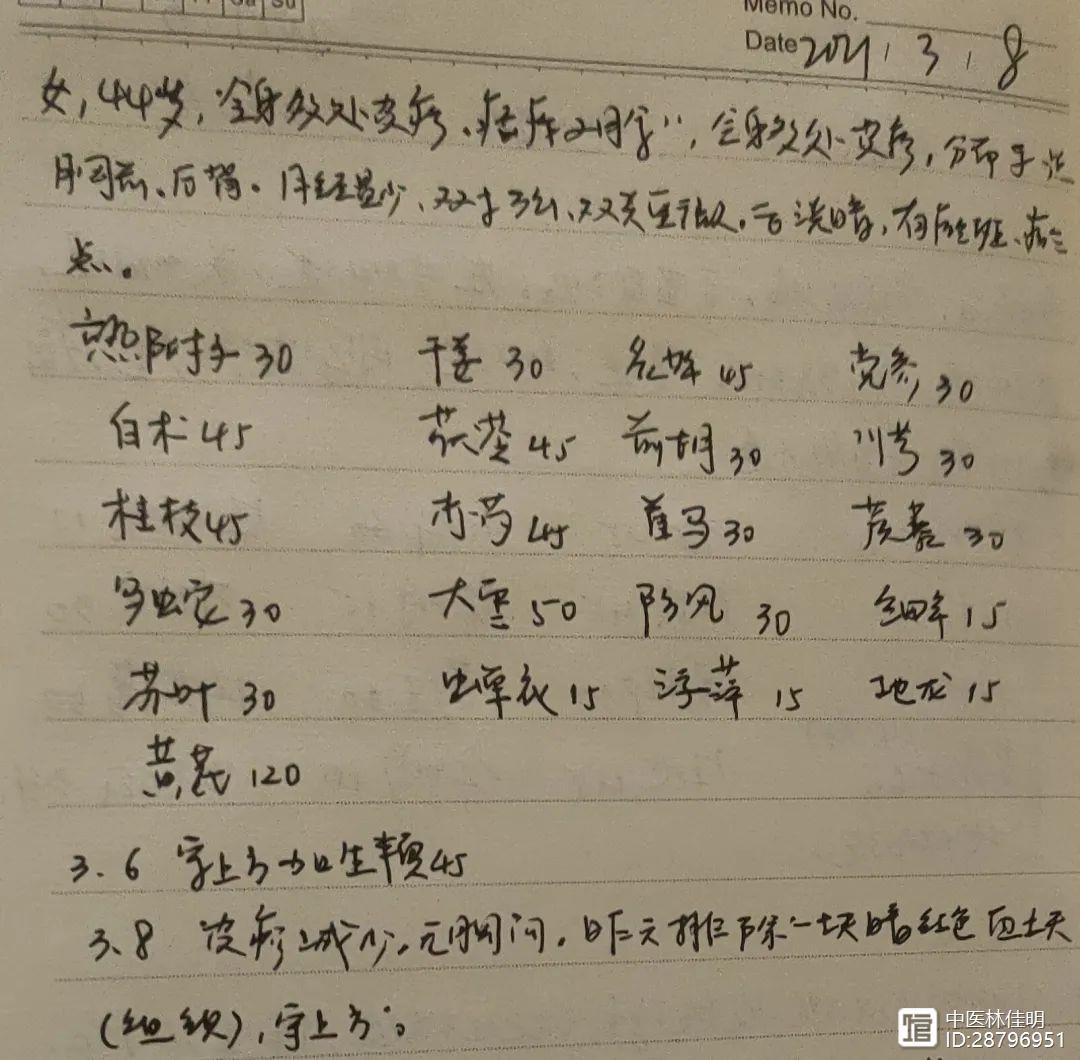 Sa Su
Memo No.
Date 2021.3.8
女,44岁,全身多处皮疹、病历2月余",全身多处皮疹,分布于
胸前、后背。月经量少、双寸弱、双关重取。舌淡暗,有瘀斑、瘀
点。
熟附子 30 干姜 30 炙甘草 45 党参 30
白术 45 茯苓 45 前胡 30 川芎 30
桂枝 45 赤芍 45 30 30
30 大枣 50 防风 30 细辛 15
苏叶 30 虫草衣 15 浮萍 15 地龙 15
黄芪 120
3.6 守上方加生半夏 45
3.8 皮疹减少,无胸闷,昨天排除一块暗红色血块
(组织),守上方。
中医林佳明
ID:28796951